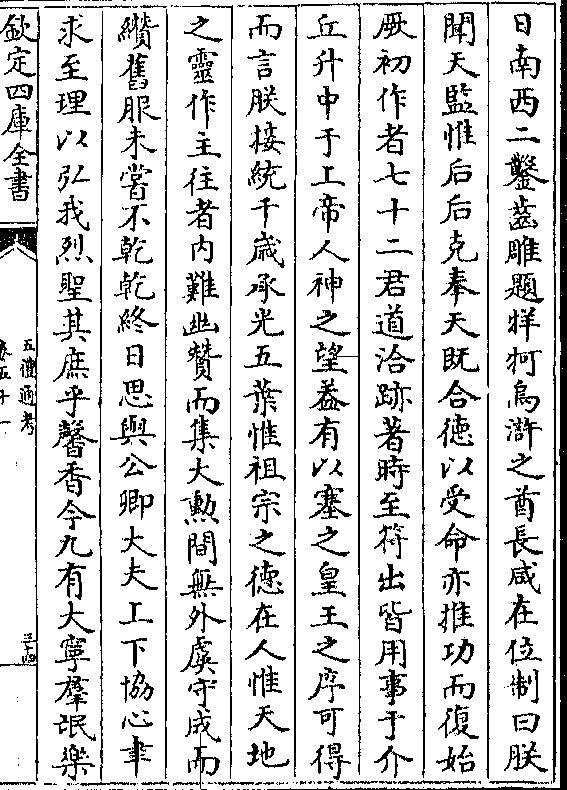 日南西二鑿齒雕題牂牁烏滸之酋長咸在位制曰朕
聞天監惟后后克奉天既合德以受命亦推功而復始
厥初作者七十二君道洽跡著時至符出皆用事于介
丘升中于上帝人神之望蓋有以塞之皇王之序可得
而言朕接統千歲承光五葉惟祖宗之德在人惟天地
之靈作主往者內難幽贊而集大勲間無外虞守成而
纘舊服未嘗不乾乾終日思與公卿大夫上下協心聿
求至理以弘我烈聖其庶乎馨香今九有大寧羣氓樂
欽定四庫全書
五禮通考
卷五十一
三十四